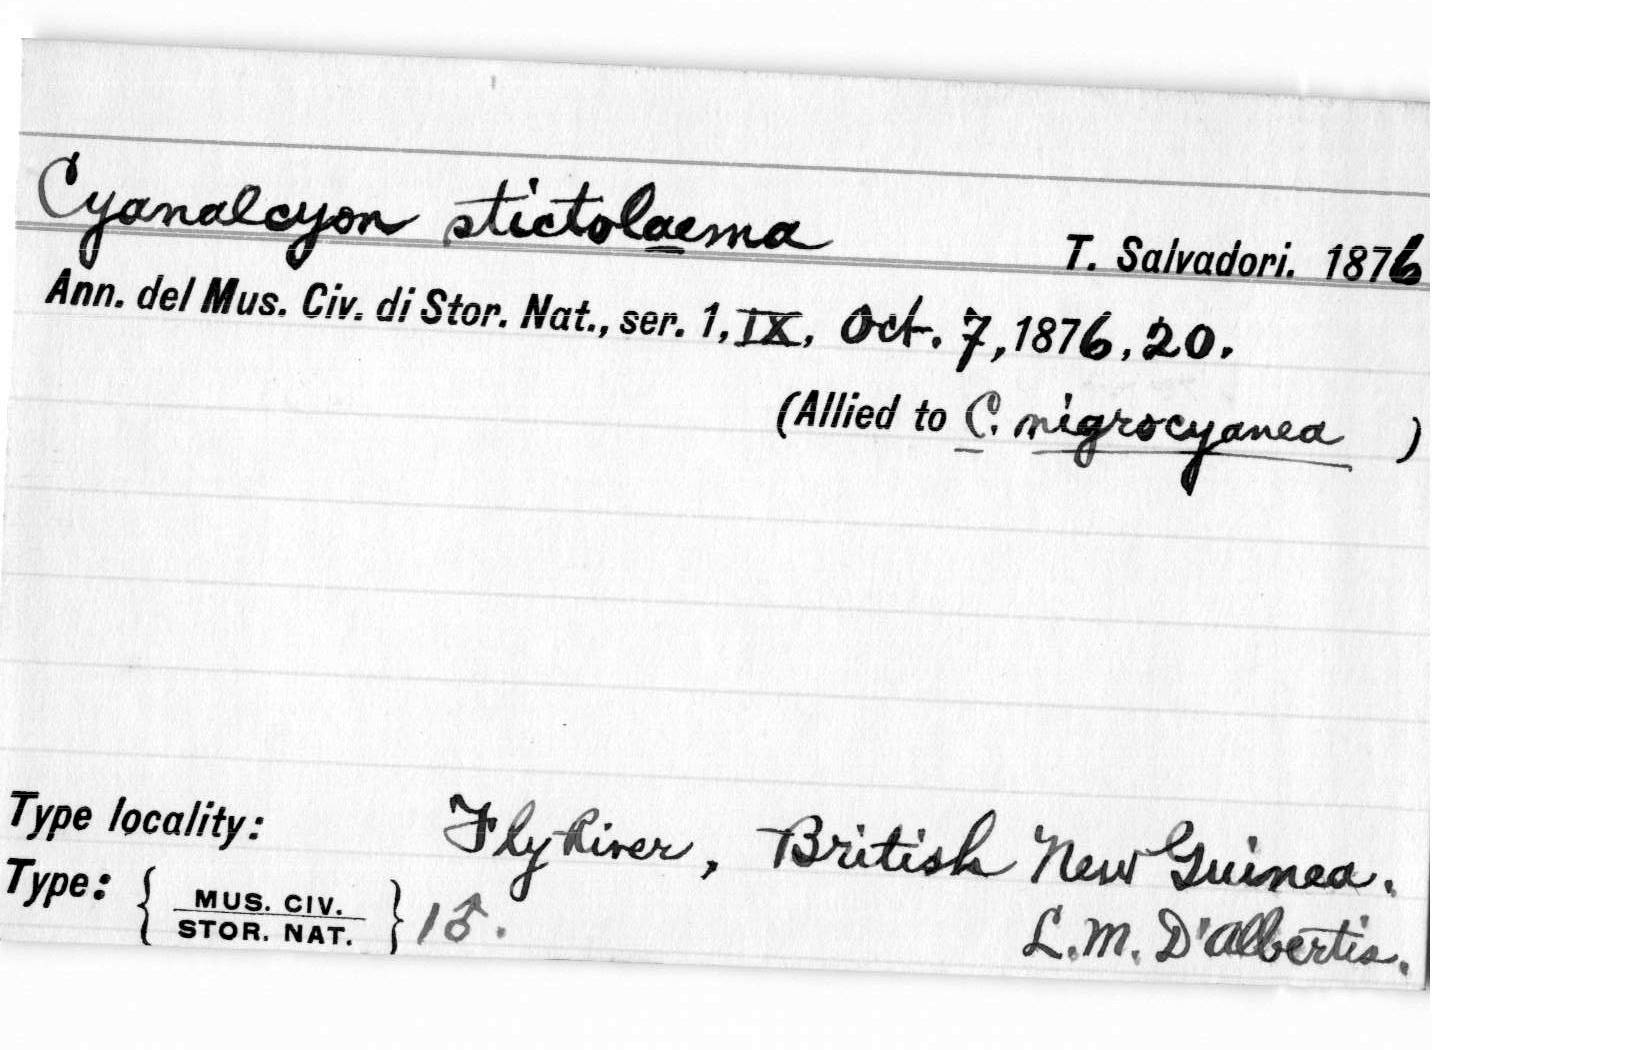 Cyanalcyon stictolaema T. Salvadori. 1876
Ann. del Mus. Civ. di Stor. Nat., ser. 1, IX, Oct. 7, 1876, 20.
(Allied to C. nigrocyanea )
Type locality: Fly River, British New Guinea.
Type: { MUS. CIV. STOR. NAT. } 1 ♂. L. M. D'Albertis.